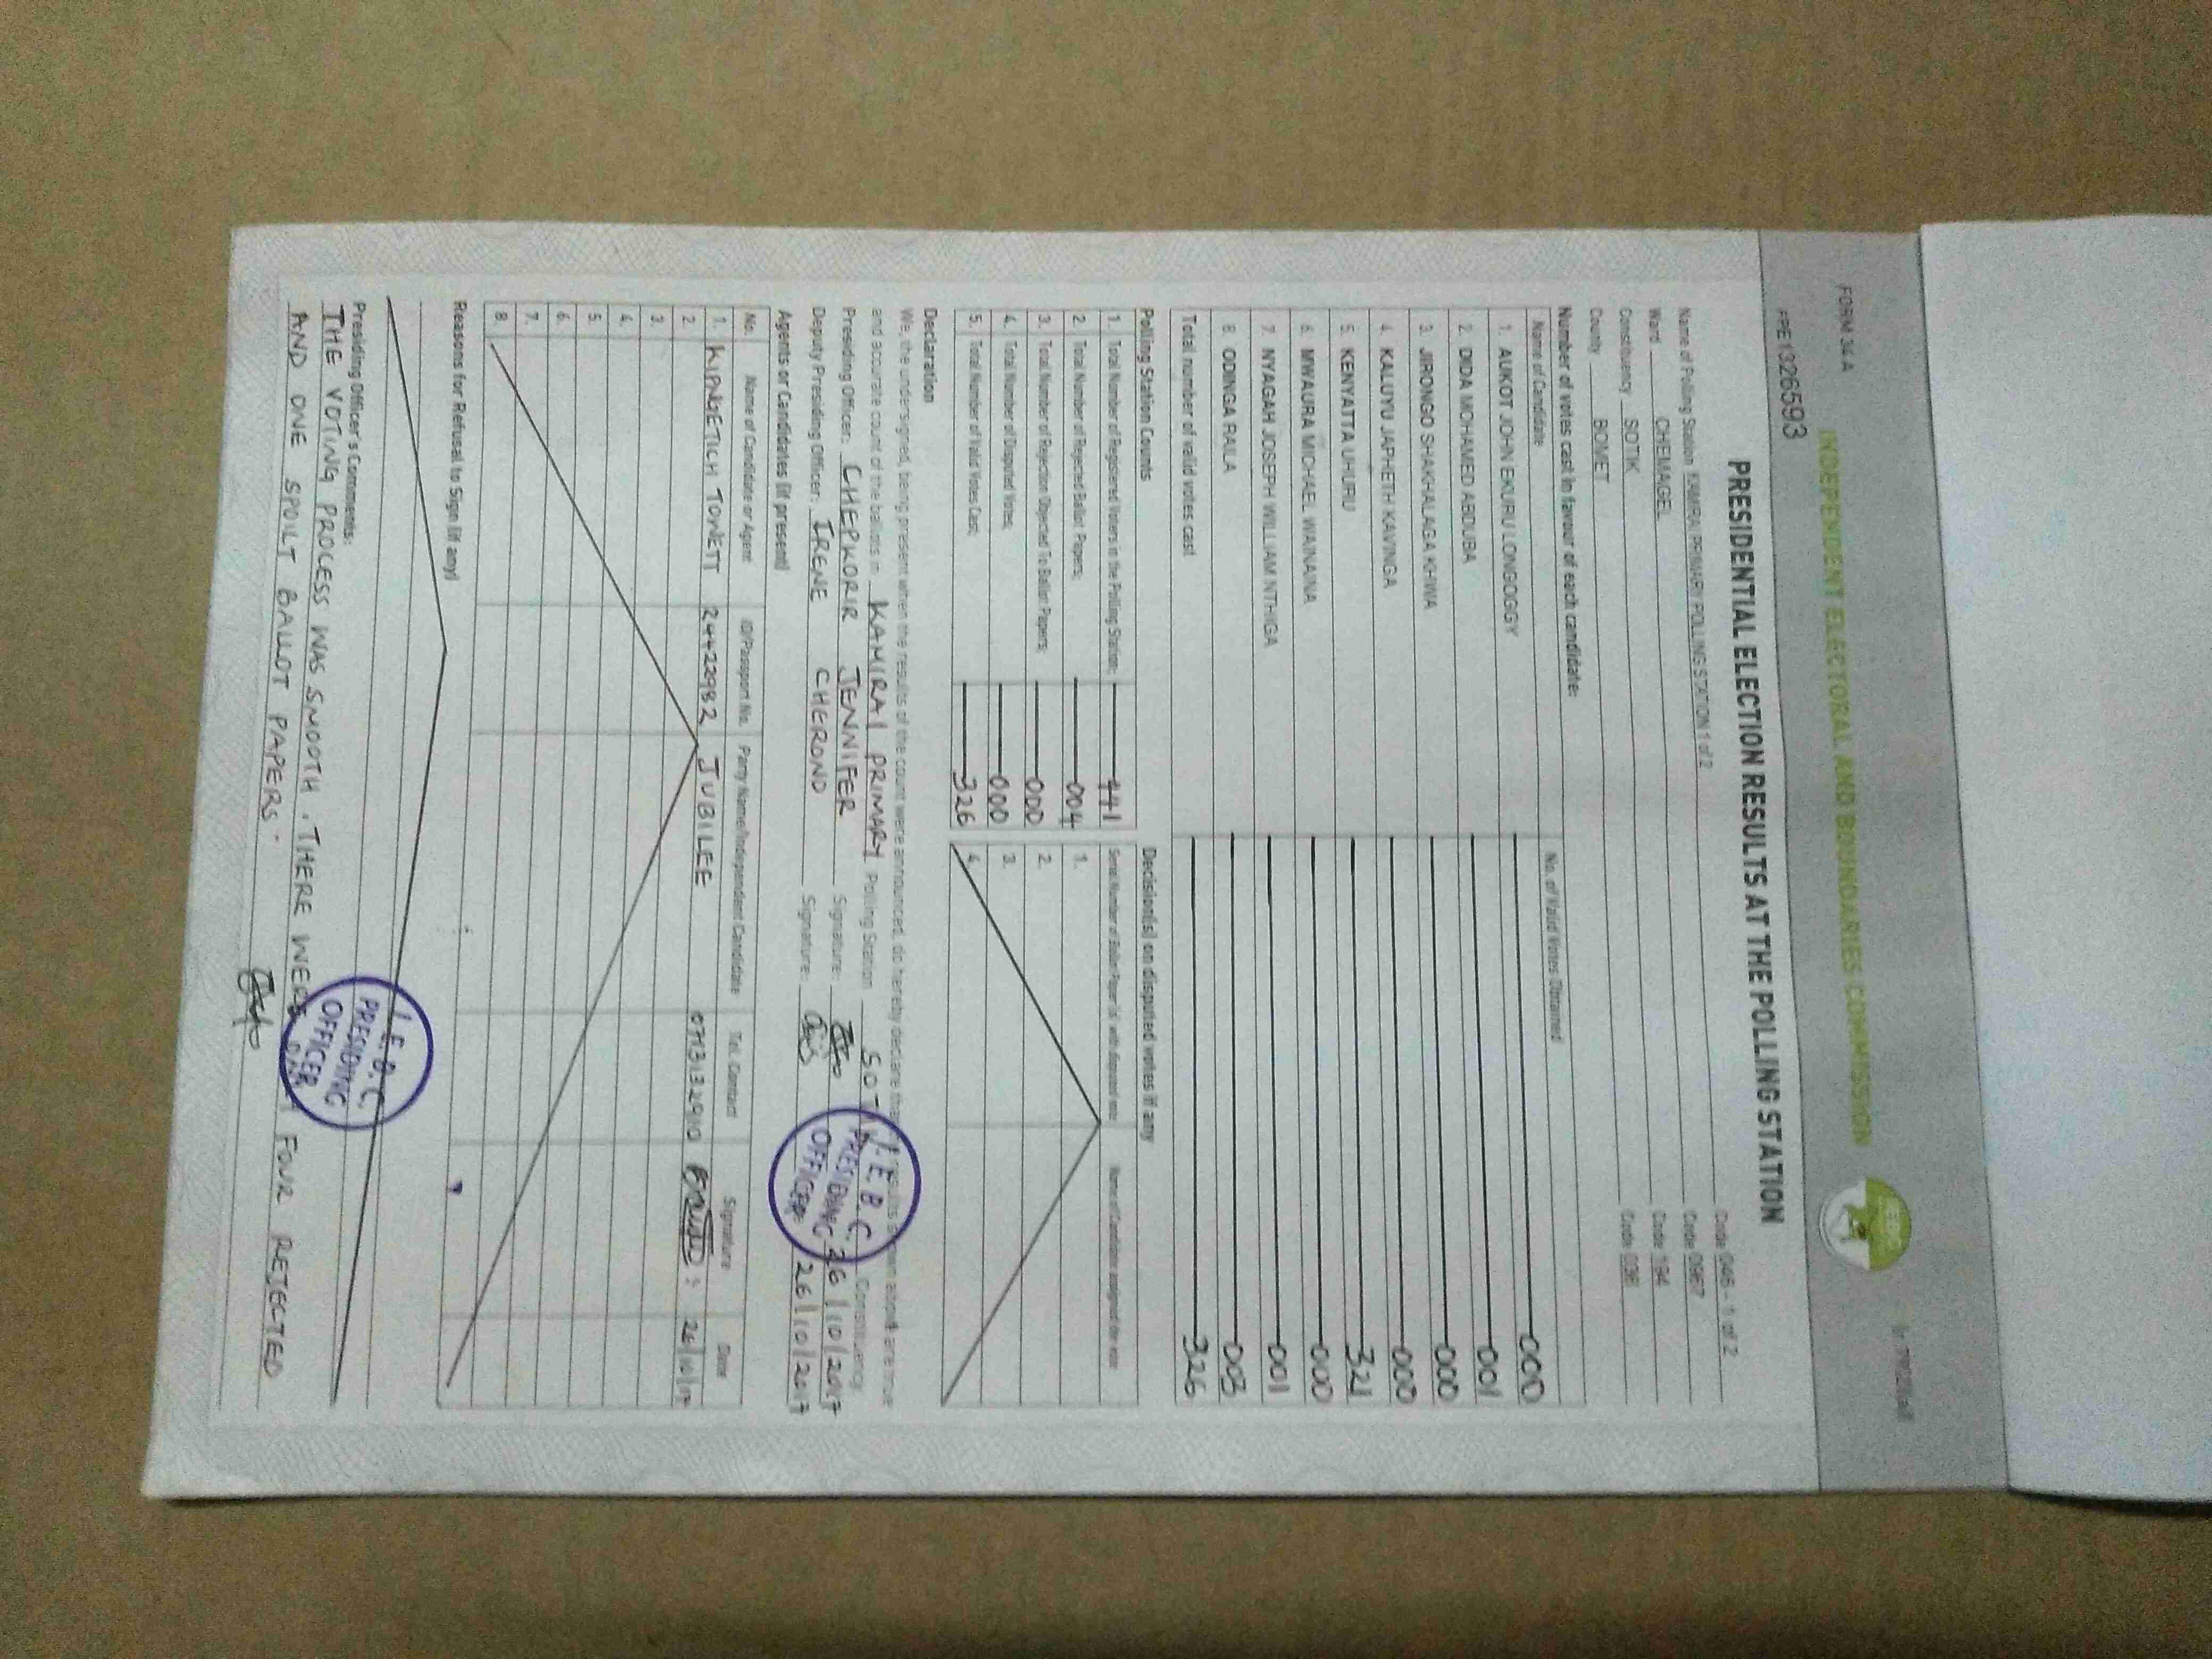 FORM 34A
INDEPENDENT ELECTORAL AND BOUNDARIES COMMISSION
FPE 1326593
PRESIDENTIAL ELECTION RESULTS AT THE POLLING STATION
Name of Polling Station KAMIRAI PRIMARY POLLING STATION 1 of 2 Code 046 - 1 of 2
Ward CHEMAGEL Code 0967
Constituency SOTIK Code 194
County BOMET Code 036
Number of votes cast in favour of each candidate:
Name of Candidate No. of Valid Votes Obtained
1. AUKOT JOHN EKURU LONGOGGY 000
2. DIDA MOHAMED ABDUBA 001
3. JIRONGO SHAKHALAGA KHWA 000
4. KALUYU JAPHETH KAVINGA 000
5. KENYATTA UHURU 321
6. MWAURA MICHAEL WAINAINA 000
7. NYAGAH JOSEPH WILLIAM NTHIGA 001
8. ODINGA RAILA 003
Total number of valid votes cast 326
Polling Station Counts Decision(s) on disputed votes if any
1. Total Number of Registered Voters in the Polling Station; 441 Serial Number of Ballot Paper
2. Total Number of Rejected Ballot Papers; 004 1.
3. Total Number of Rejection Objected To Ballot Papers; 000 2.
4. Total Number of Disputed Votes; 000 3.
5. Total Number of Valid Votes Cast; 326 4.
Declaration
We, the undersigned, being present when the results of the count were announced, do hereby declare that the results shown above are true
and accurate count of the ballots in KAMIRAI PRIMARY Polling Station SOTIK Constituency
Presiding Officer: CHEPKORIR JENNIFER Signature: 26/10/2017
Deputy Presiding Officer: IRENE CHERONO Signature: 26/10/2017
I.E.B.C.
PRESIDING
OFFICER
Agents or Candidates (if present)
No. Name of Candidate or Agent ID/Passport No. Party Name/Independent Candidate Tel. Contact Signature Date
1. KIPNGETICH TOWETT 24422982 JUBILEE 0713132910 26/10/17
2.
3.
4.
5.
6.
7.
8.
Reasons for Refusal to Sign (if any)
I.E.B.C.
PRESIDING
OFFICER
Presiding Officer's Comments:
THE VOTING PROCESS WAS SMOOTH. THERE WERE FOUR REJECTED
AND ONE SPOILT BALLOT PAPERS.